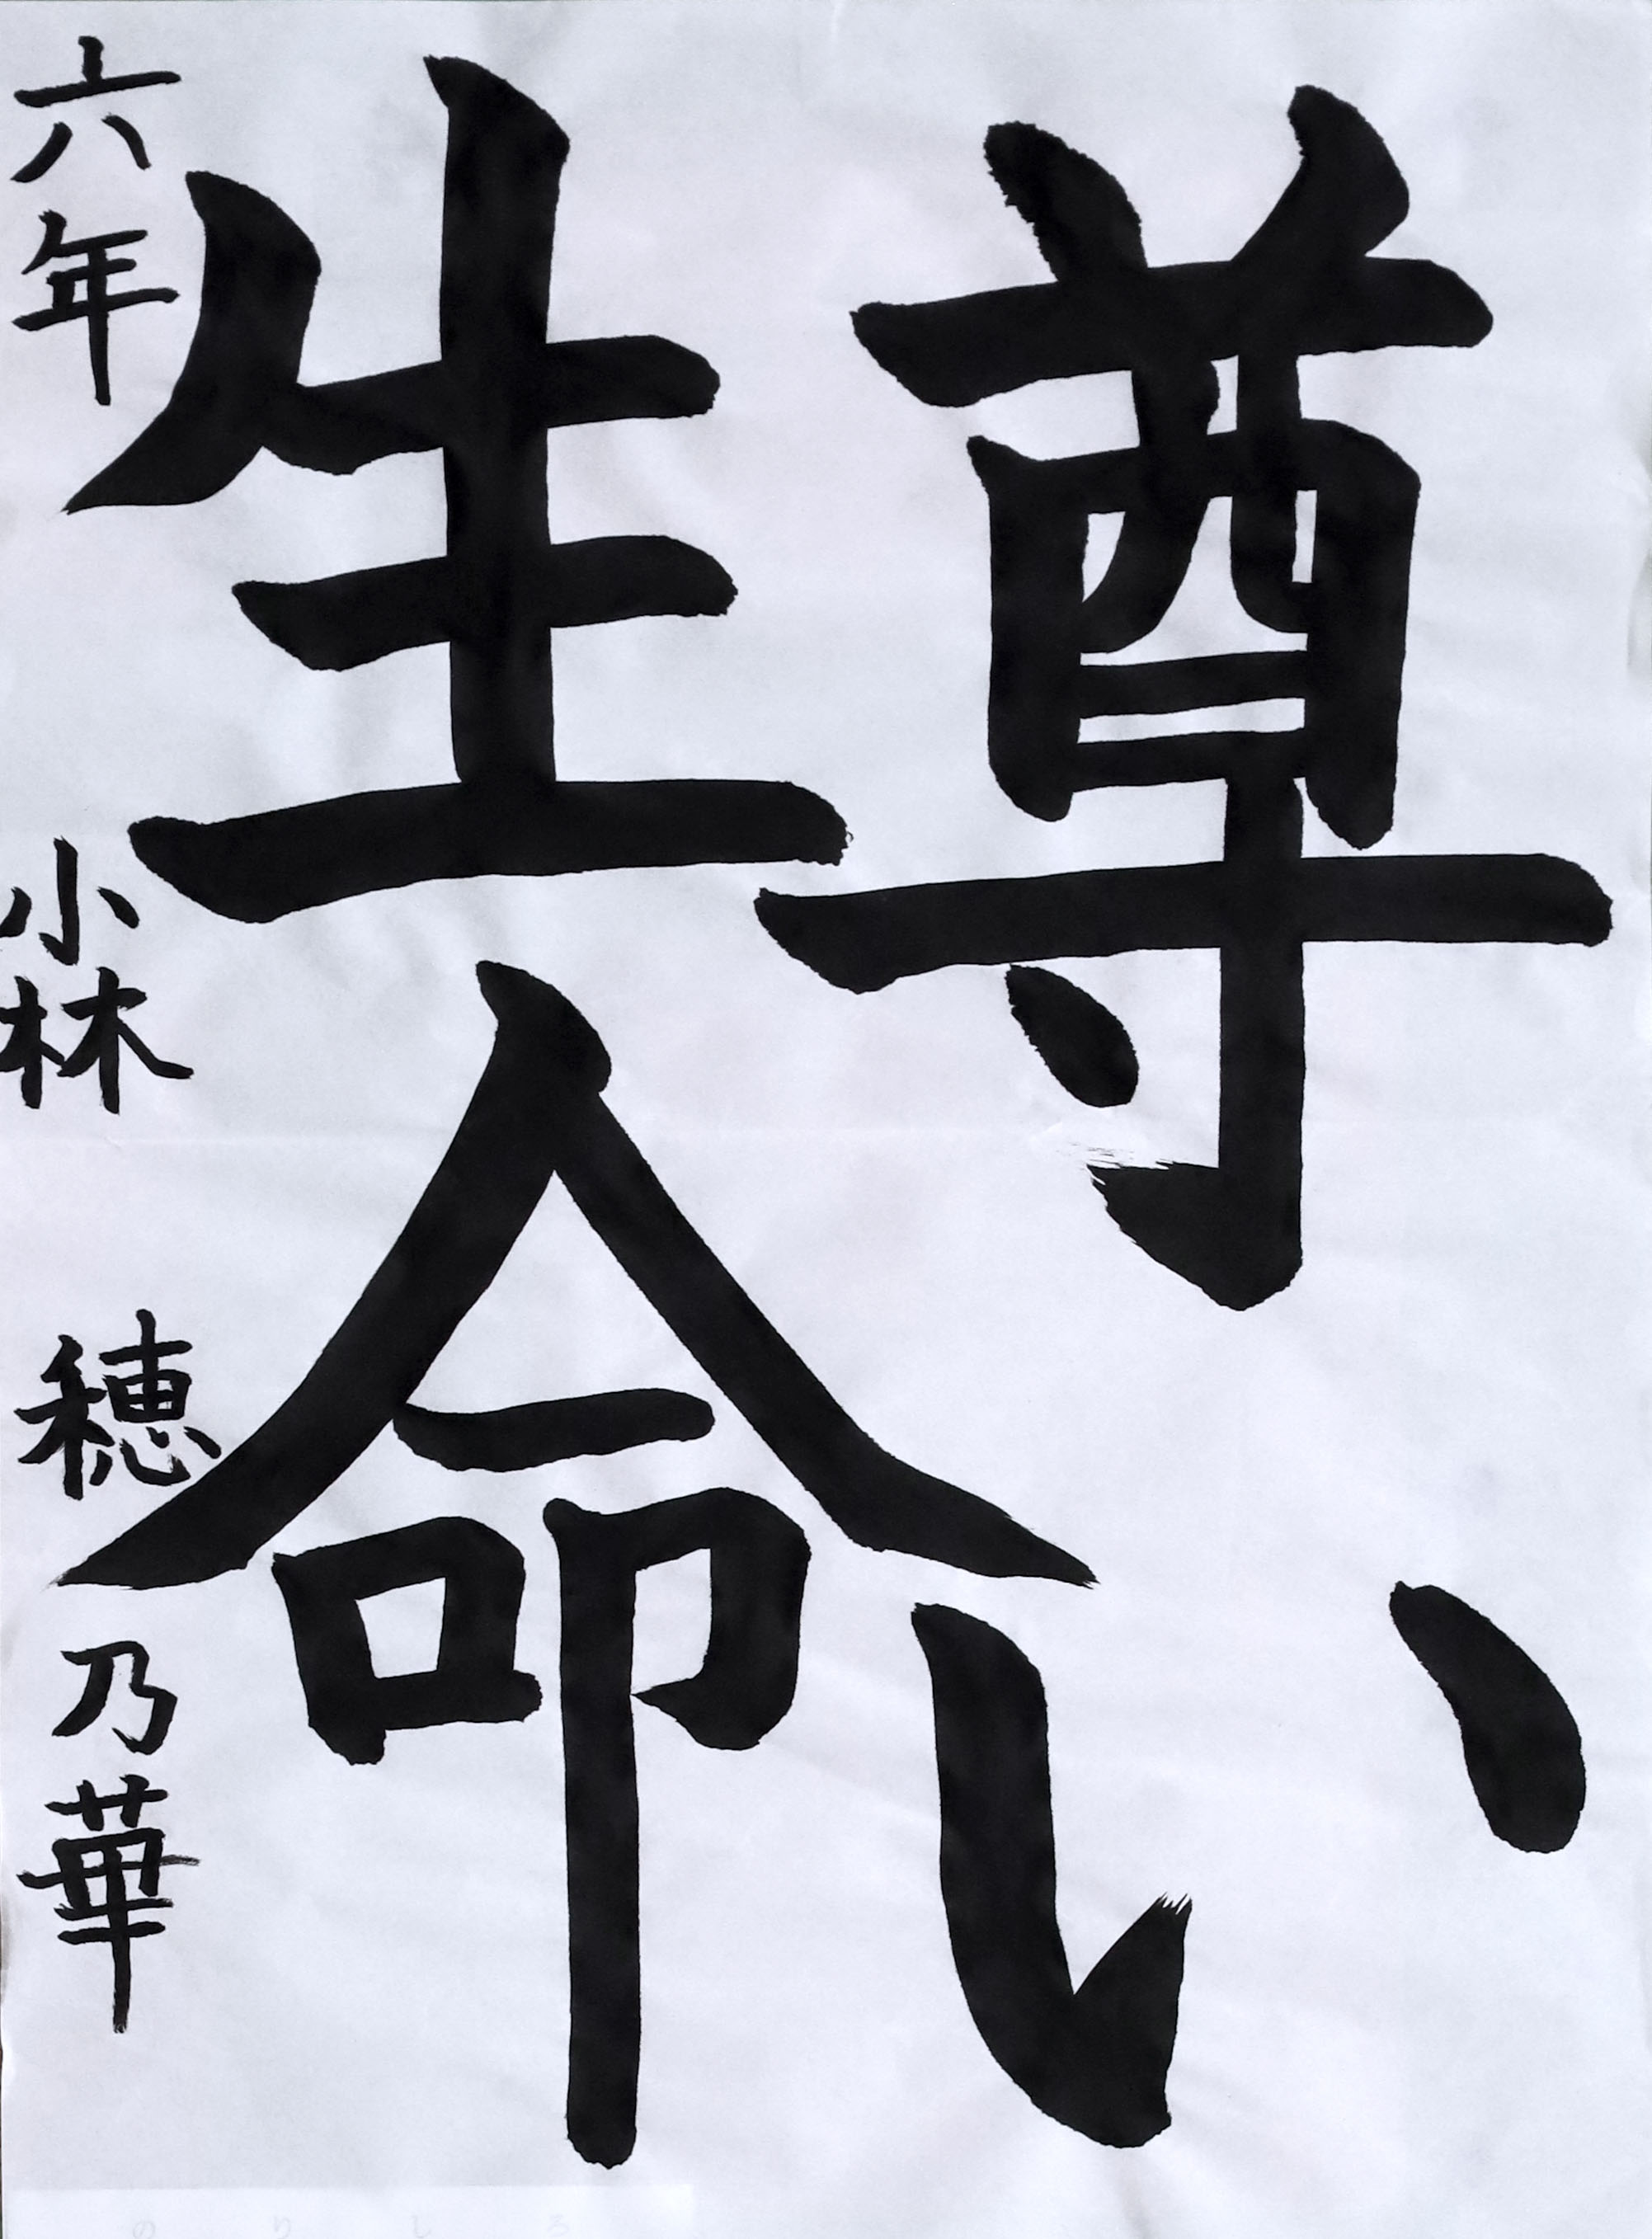 尊い
生命
六年 小林 穂乃華
のりしろ